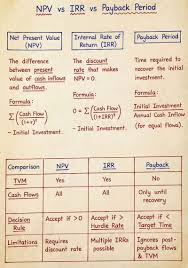 NPV vs IRR vs Payback Period
Net Present Value
(NPV)
The difference
between present
value of cash inflows
and outflows.
Formula
Σ (Cash Flow / (1+t)^t)
- Initial Investment.
Internal Rate of
Return (IRR)
The discount
rate that makes
NPV = 0.
Formula
Σ (Cash Flow / (1+IRR)^t)
- Initial Investment.
Payback Period
Time required to
recover the initial
investment.
Formula
- Initial Investment
Annual Cash Flow
(for equal flows).
Comparison NPV IRR Payback
TVM Yes Yes No
Cash Flows All All Only until
recovery
Decision
Rule Accept if > 0 Accept if >
Hurdle Rate Accept if <
Target Time
Limitations Requires
discount rate Multiple IRRs
possible Ignores post-
payback flows
& TVM